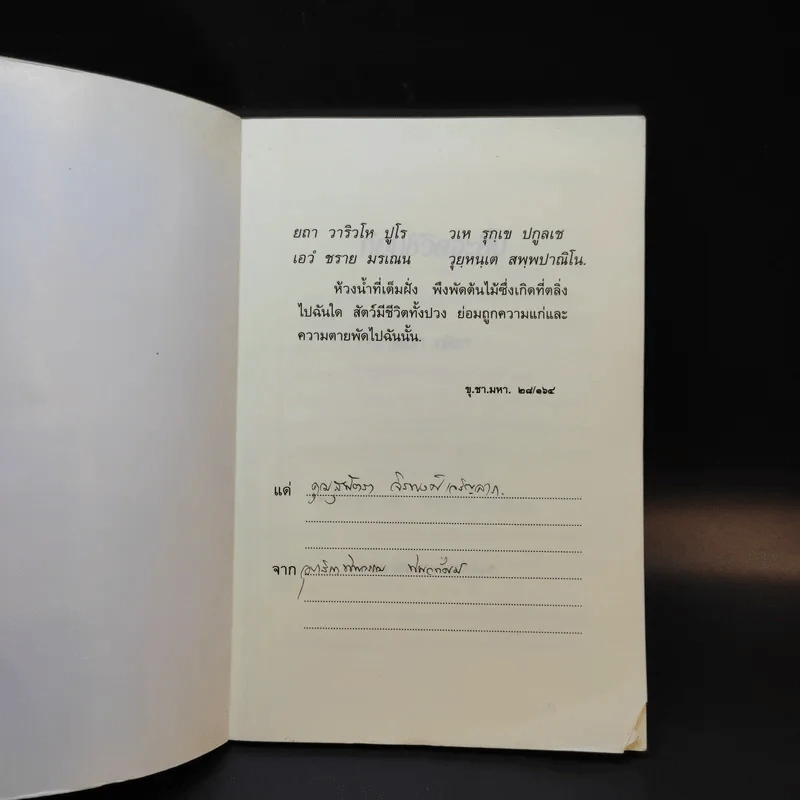 ยถา วาริวโห ปูโร วเห รุกฺเข ปกูลเช
เอวํ ชราย มรเณน วุยฺหนฺเต สพฺพปาณิโน.
ห้วงน้ำที่เต็มฝั่ง พึงพัดต้นไม้ซึ่งเกิดที่ตลิ่ง
ไปฉันใด สัตว์มีชีวิตทั้งปวง ย่อมถูกความแก่และ
ความตายพัดไปฉันนั้น.
ขุ.ชา.มหา. ๒๘/๑๖๔
แด่ คุณ
จาก